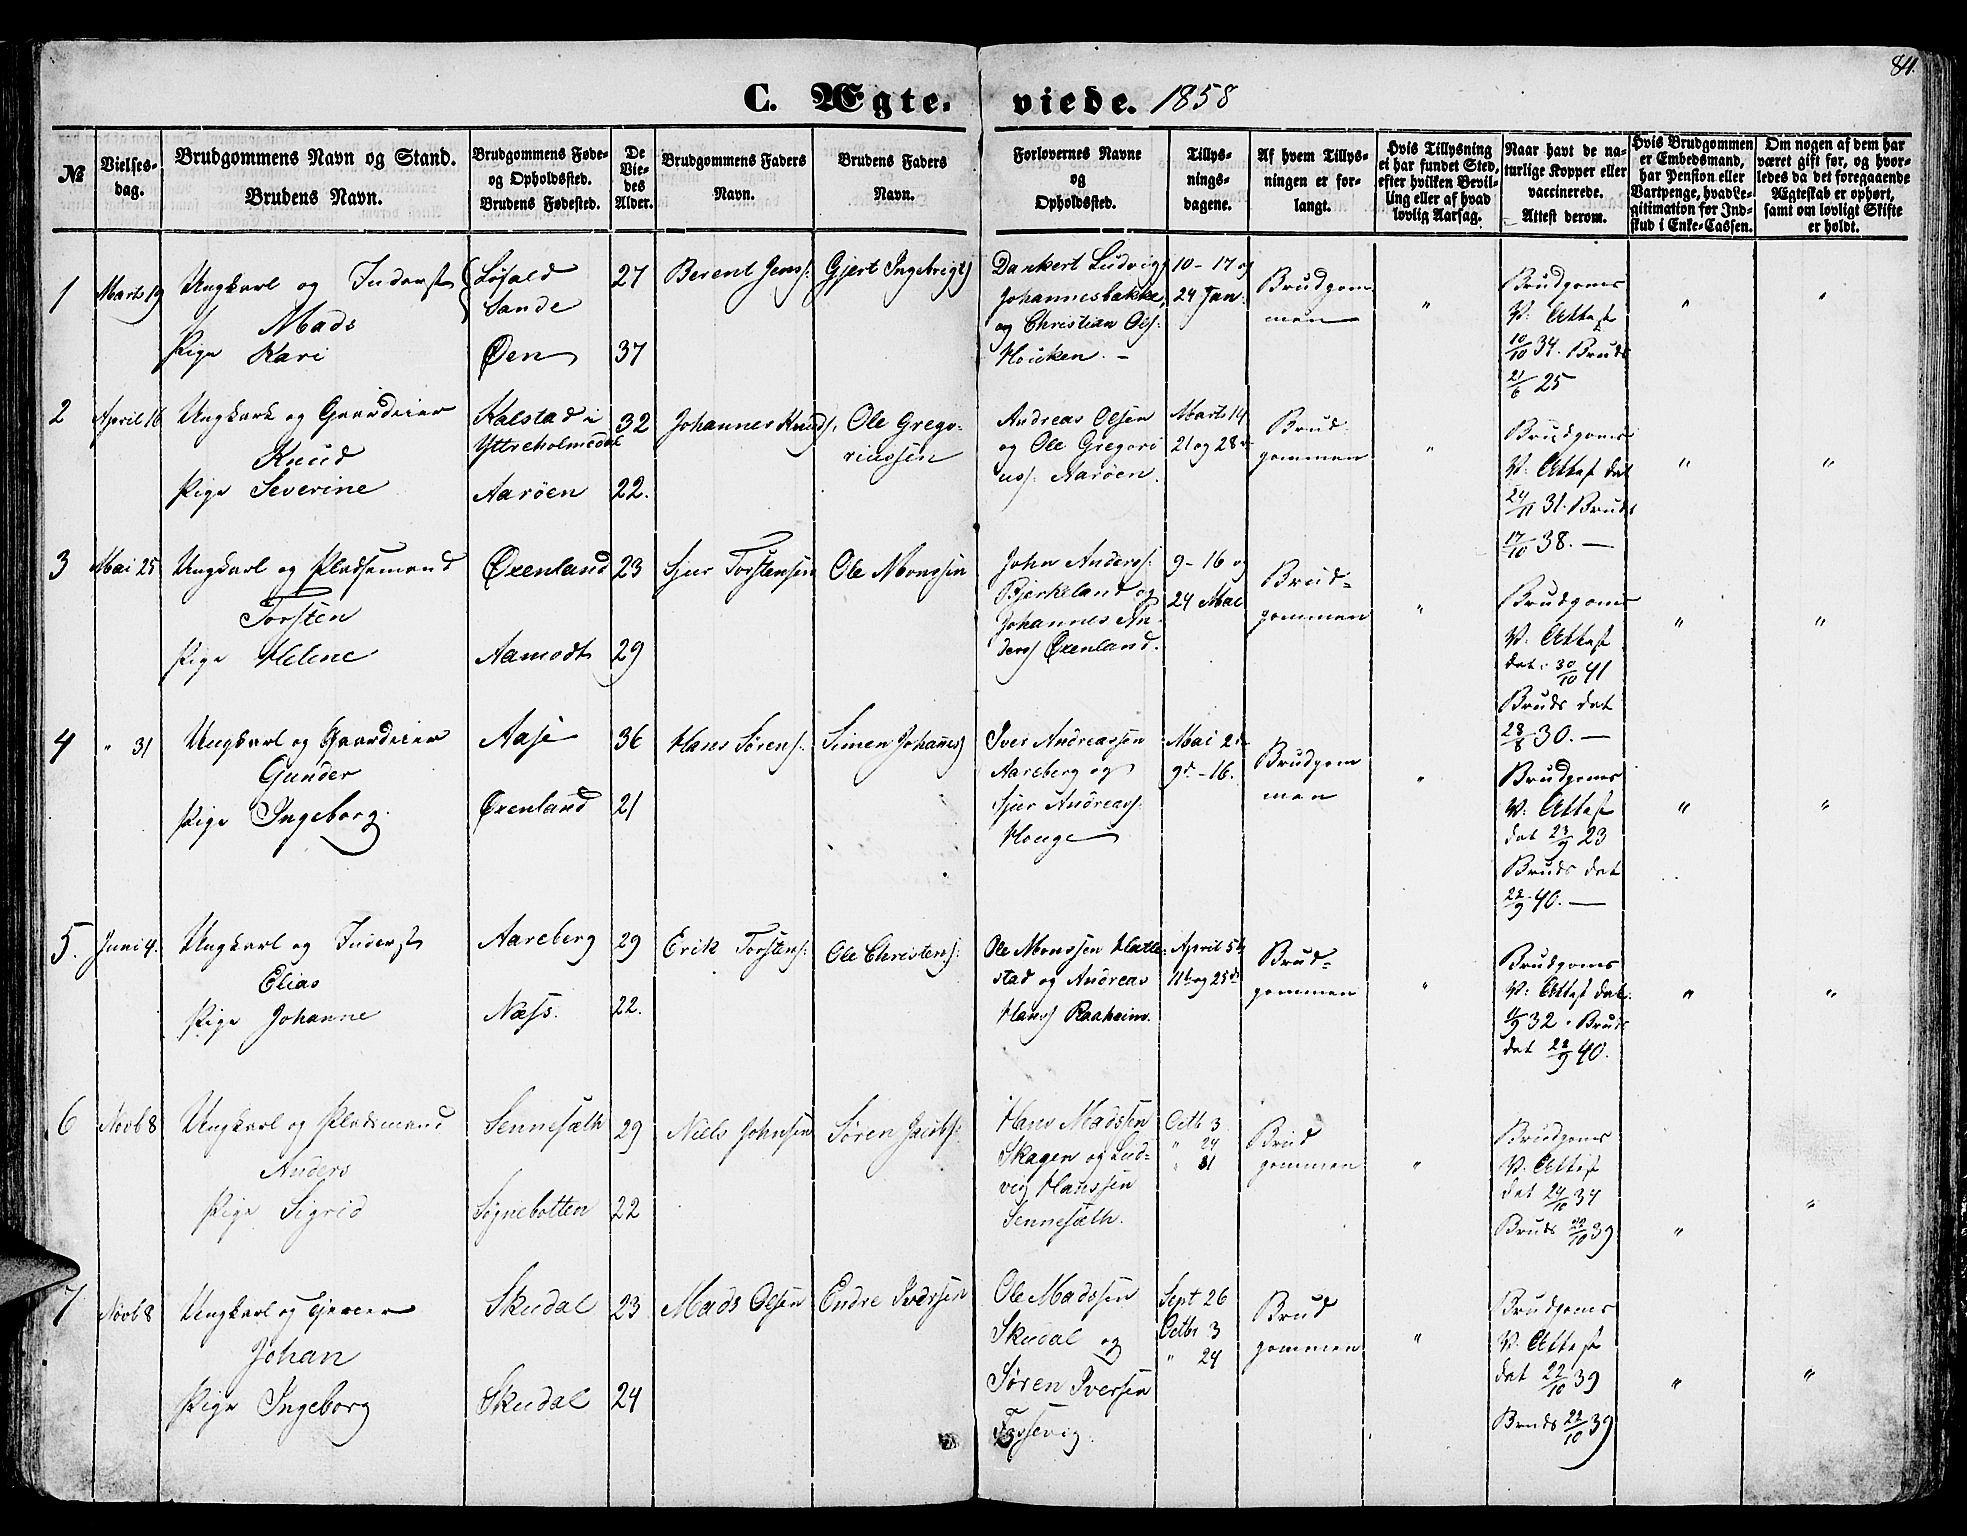 84.
C. Ægteviede. 1858
№
Vielsesdag.
Brudgommens Navn og Stand.
Brudens Navn.
Brudgommens Føde- og Opholdssted.
Brudens Fødested.
De Viedes Alder.
Brudgommens Faders Navn.
Brudens Faders Navn.
Forlovernes Navne og Opholdssted.
Tillysningsdagene.
Af hvem Tillysningen er forlangt.
Hvis Tillysning ei har fundet Sted, efter hvilken Bevilling eller af hvad lovlig Aarsag.
Naar havt de naturlige Kopper eller vaccinerede. Attest derom.
Hvis Brudgommen er Embedsmand, har Pension eller Vartpenge, hvad Legitimation for Indskud i Enke-Cassen.
Om nogen af dem har været gift før, og hvorledes da det foregaaende Ægteskab er ophørt, samt om lovligt Skifte er holdt.
1 Marts 19 Ungkarl og Inderst Mads
Pige Kari
Løfald
Sande
Øen
27
37
Berent Jens:
Gjert Ingebrigts
Dankert Ludvigs
Johannesbakke,
og Christian Ols:
Houken. –
10 – 17 og
24 Jan.
Brudgom
men
"
Brudgoms
V: Attest
10/10 34. Bruds
21/6 25
"
"
2 April 16 Ungkarl og Gaardeier
Knud
Pige Severine
Kalstad i
Yttreholmedal
Aarøen
32
22.
Johannes Knuds.
Ole Grego-
riussen
Andreas Olsen
og Ole Gregori
uss. Aarøen.
Marts 14
21 og 28de
Brud
gommen
"
Brudgoms
V: Attest dat
24/11 31. Bruds
17/10 38. —
"
"
3 Mai 25 Ungkarl og Pladsemand
Torsten
Pige Helene
Øxenland
Aamodt
23
29
Sjur Torstensen
Ole Monssen
John Anderss:
Bjerkeland og
Johannes An
derss Øxenland.
9 – 16 og
24 Mai
Brud-
gommen
"
Brudgoms
V: Attest
dat: 30/10 41
Bruds dat
28/8 30. —
"
"
4 " 31 Ungkarl og Gaardeier
Gunder
Pige Ingeborg.
Aase
Øxenland
36
21
Hans Sørens:
Simen Johanes
Iver Andreassen
Aareberg og
Sjur Andreass:
Houge
Mai 2den
9de – 16.
Brudgom
men
"
Brudgoms
V: Attest
dat 23/9 23
Bruds dat
22/9 40. —
"
"
5. Juni 4. Ungkarl og Inderst
Elias
Pige Johanne
Aareberg
Næss.
29
22.
Erik Torstens:
Ole Christens:
Ole Monssen Hatle-
stad og Andreas
Hanss Raaheim.
April 5te
11te og 25de
Brud-
gommen
"
Brudgoms
V: Attest dat.
9/9 32. Bruds
dat 22/9 40.
"
"
6 Novb 8 Ungkarl og Pladsemand
Anders
Pige Sigrid
Sennesæth
Sognebotten
29
22
Niels Johnsen
Søren Jacobs:
Hans Madssen
Skagen og Lud-
vig Hanssen
Sennesæth.
Octb 3
" 24
" 31
Brud
gommen
"
Brudgoms
V: Attest
dat 24/10 34
Bruds 22/10 39
"
"
7 Novb 8 Ungkarl og
Johan
Pige Ingeborg
Skudal
Skudal
23
24
Mads Olsen
Endre Iversen
Ole Madssen
Skudal og
Søren Iversen
Fossevig.
Sept 26
Octbr 3
" 24
Brud
gommen
"
Brudgoms
V: Attest
dat 22/10 39
Bruds 22/10 39
"
"